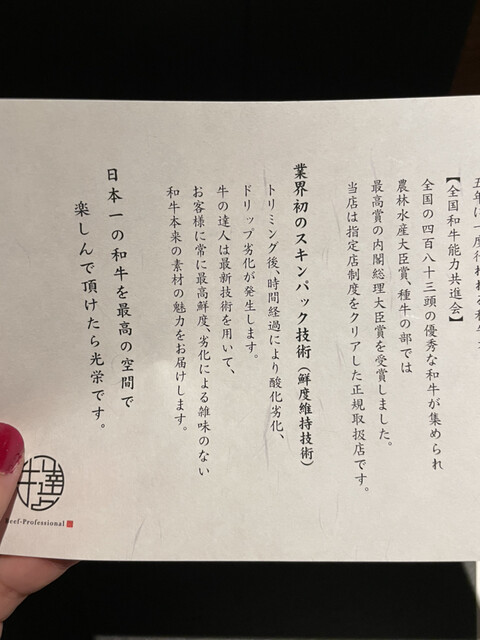 【全国和牛能力共進会】
全国の四百八十三頭の優秀な和牛が集められ
農林水産大臣賞、種牛の部では
最高賞の内閣総理大臣賞を受賞しました。
当店は指定店制度をクリアした正規取扱店です。
業界初のスキンパック技術（鮮度維持技術）
トリミング後、時間経過により酸化劣化、
ドリップ劣化が発生します。
牛の達人は最新技術を用いて、
お客様に常に最高鮮度、劣化による雑味のない
和牛本来の素材の魅力をお届けします。
日本一の和牛を最高の空間で
楽しんで頂けたら光栄です。
Beef-Professional